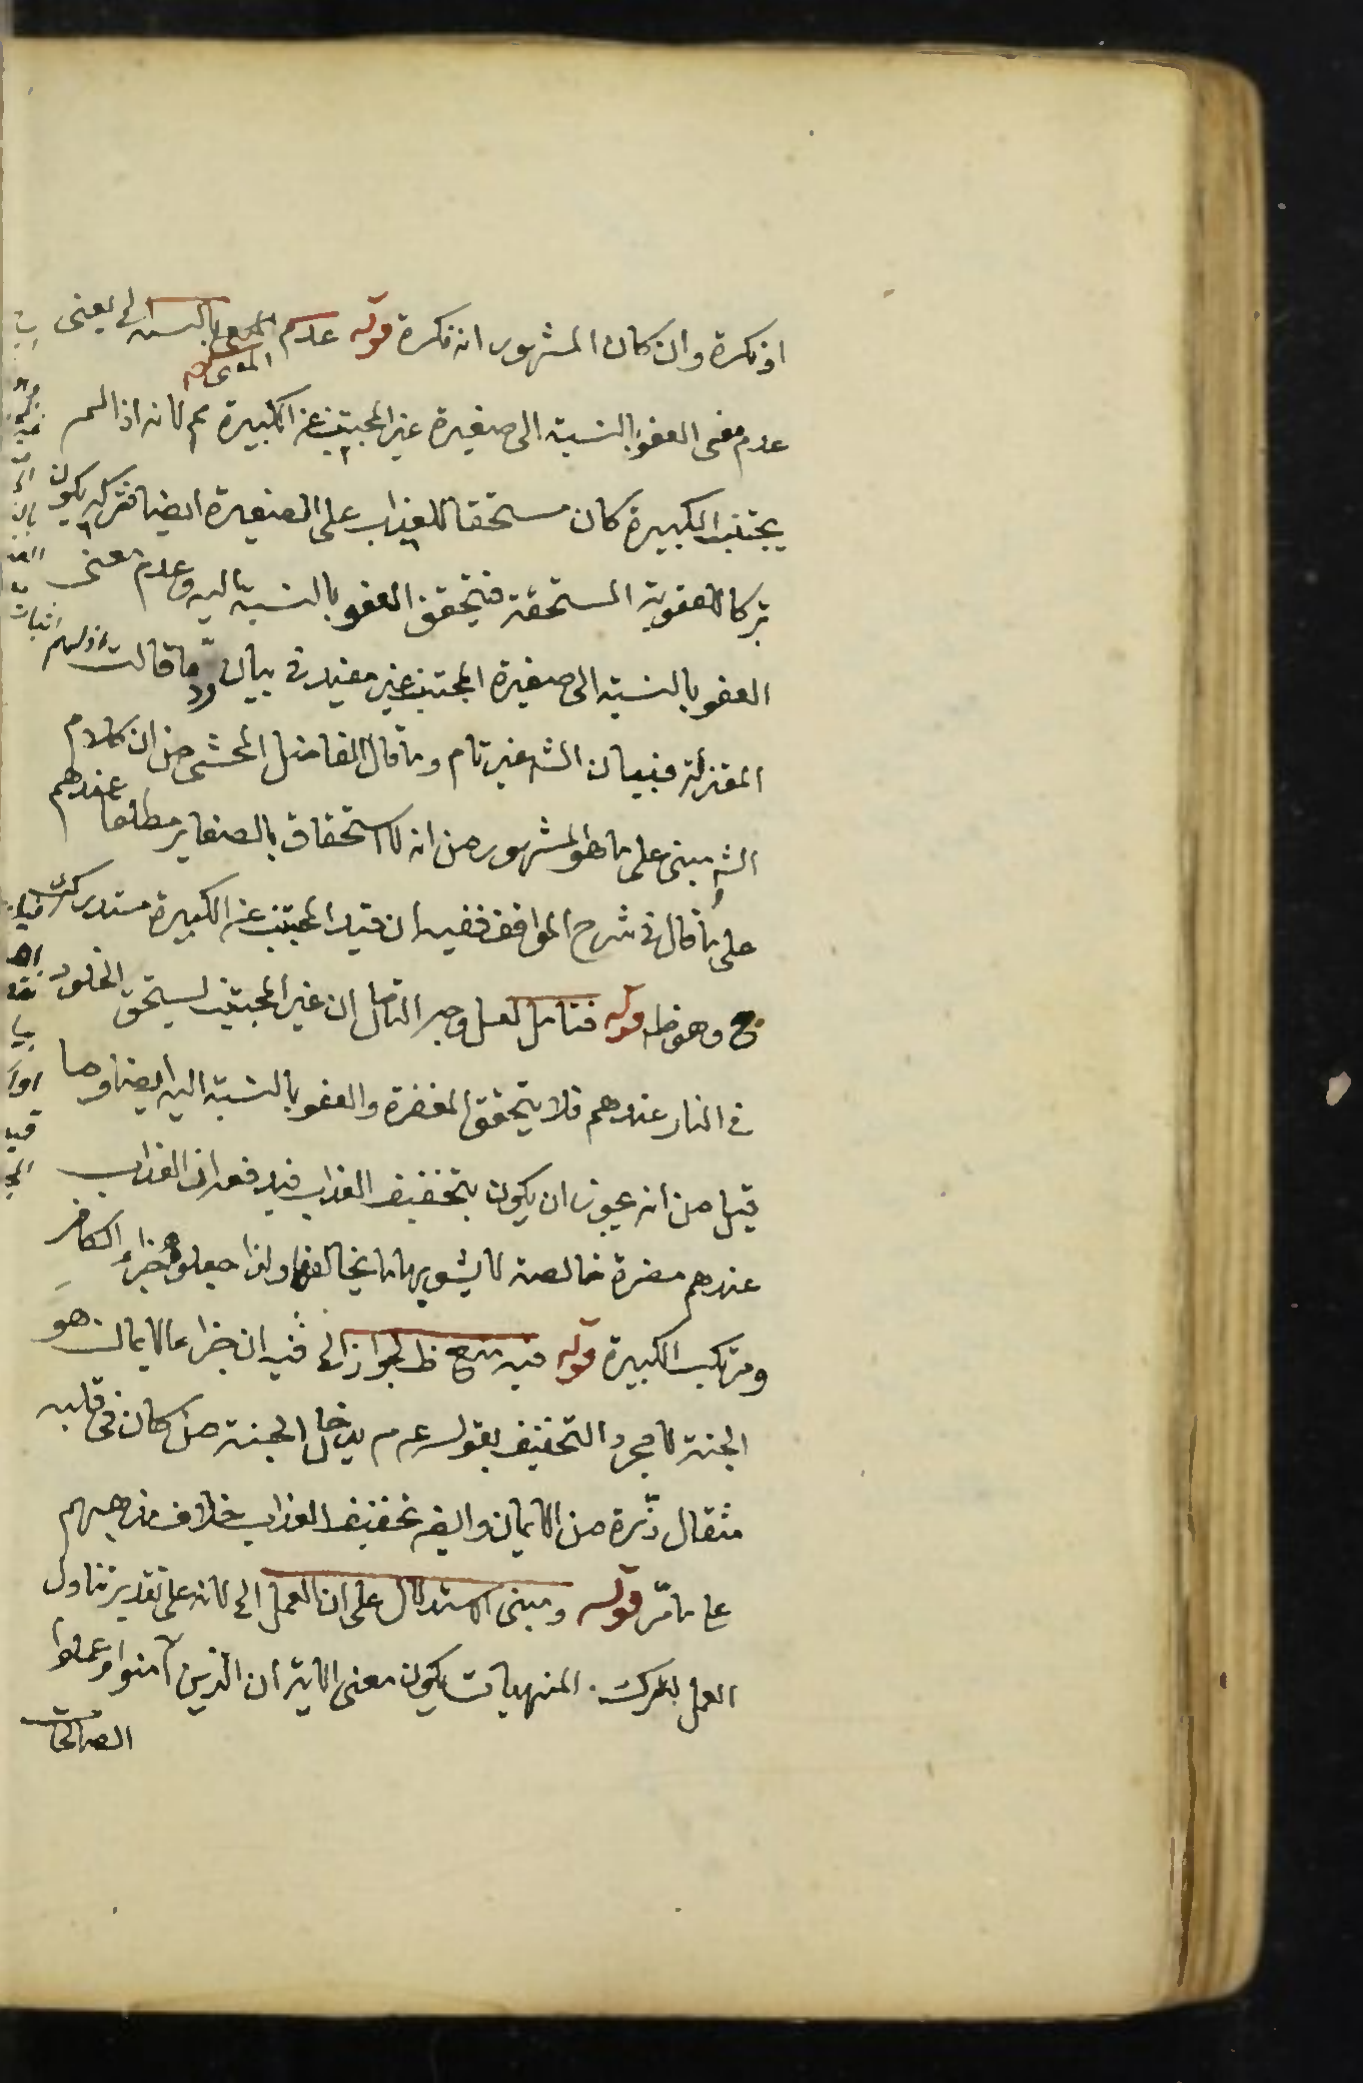 او نكرة وان كان المشهور انه نكرة قوله عدم المعنى بالنسبة الخ يعنى
عدم معنى العفو بالنسبة الى صغيرة غير المجتنب عن الكبيرة مم لانه اذا لم
يجتنب الكبيرة كان مستحقا للعذاب على الصغيرة ايضا فتركه يكون
تركا للعقوبة المستحقة فيتحقق العفو بالنسبة اليه وعدم معنى
العفو بالنسبة الى صغيرة المجتنب غير مفيد في بيان رد ما قالت
المعتزلة فبيان الشه غير تام وما قال الفاضل المحشى من ان كلام
الشه مبنى على ما هو المشهور من انه لا استحقاق بالصغاير مطلقا عندهم
على ما قال في شرح المواقف ففيه ان قيد المجتنب عن الكبيرة مستدرك
ح وهو ظ قوله فتامل لعل وجه التامل ان غير المجتنب يستحق الخلود
في النار عندهم فلا يتحقق المغفرة والعفو بالنسبة اليه ايضا وما
قيل من انه يجوز ان يكون بتخفيف العذاب فيدفعه ان العذاب
عندهم مضرة خالصة لا يشوبها ما يخالفها ولذا جعلوه جزاء الكافر
ومرتكب الكبيرة قوله فيه منع ظ لجواز الخ فيه ان جزاء الايمان هو
الجنة لا مجرد التخفيف بقوله عم يدخل الجنة من كان في قلبه
مثقال ذرة من الايمان وايضه تخفيف العذاب خلاف مذهبهم
على ما مر قوله ومبنى الاستدلال على ان العمل الخ لانه على تقدير تناول
العمل لترك المنهيات يكون معنى الاية ان الذين آمنوا وعملوا
الصالحات